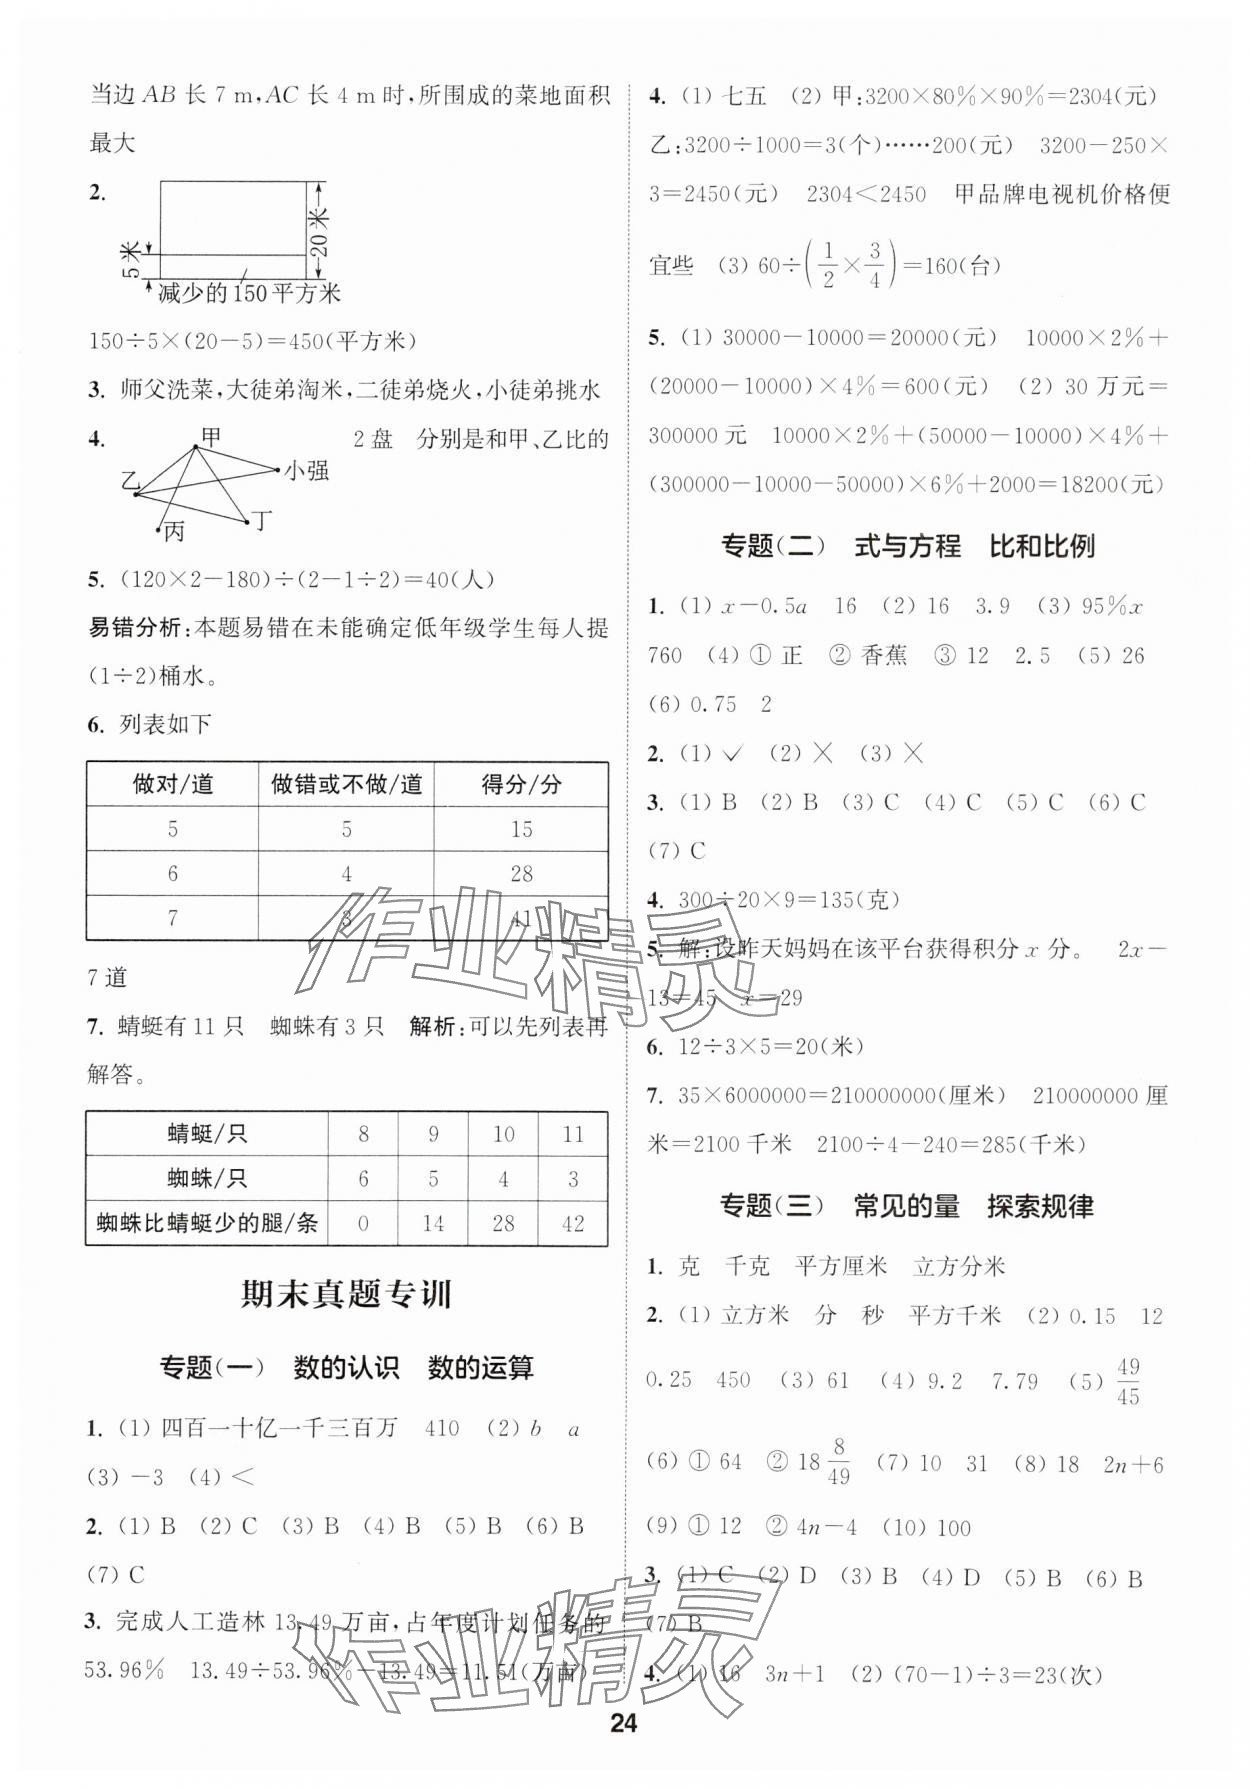 当边 AB 长 7 m,AC 长 4 m 时,所围成的菜地面积
最大
2.
5 米
20 米
减少的 150 平方米
150÷5×(20－5)＝450(平方米)
3. 师父洗菜,大徒弟淘米,二徒弟烧火,小徒弟挑水
4.
甲
乙
丙
丁
小强
2 盘　分别是和甲、乙比的
5. (120×2－180)÷(2－1÷2)＝40(人)
易错分析:本题易错在未能确定低年级学生每人提
(1÷2)桶水。
6. 列表如下
做对/道　做错或不做/道　得分/分
5　5　15
6　4　28
7　3　41
7 道
7. 蜻蜓有 11 只　蜘蛛有 3 只　解析:可以先列表再
解答。
蜻蜓/只　8　9　10　11
蜘蛛/只　6　5　4　3
蜘蛛比蜻蜓少的腿/条　0　14　28　42
期末真题专训
专题(一)　数的认识　数的运算
1. (1) 四百一十亿一千三百万　410　(2) b　a
(3) －3　(4) ＜
2. (1) B　(2) C　(3) B　(4) B　(5) B　(6) B
(7) C
3. 完成人工造林 13.49 万亩,占年度计划任务的
53.96%　13.49÷53.96%－13.49＝11.51(万亩)
4. (1) 七五　(2) 甲:3200×80%×90%＝2304(元)
乙:3200÷1000＝3(个)……200(元)　3200－250×
3＝2450(元)　2304＜2450　甲品牌电视机价格便
宜些　(3) 60÷(1/2×3/4)＝160(台)
5. (1) 30000－10000＝20000(元)　10000×2%＋
(20000－10000)×4%＝600(元)　(2) 30 万元＝
300000 元　10000×2%＋(50000－10000)×4%＋
(300000－10000－50000)×6%＋2000＝18200(元)
专题(二)　式与方程　比和比例
1. (1) x－0.5a　16　(2) 16　3.9　(3) 95%x
760　(4) ① 正　② 香蕉　③ 12　2.5　(5) 26
(6) 0.75　2
2. (1) ✓　(2) ×　(3) ×
3. (1) B　(2) B　(3) C　(4) C　(5) C　(6) C
(7) C
4. 300÷20×9＝135(克)
5. 解:设昨天妈妈在该平台获得积分 x 分。　2x－
13＝45　x＝29
6. 12÷3×5＝20(米)
7. 35×6000000＝210000000(厘米)　210000000 厘
米＝2100 千米　2100÷4－240＝285(千米)
专题(三)　常见的量　探索规律
1. 克　千克　平方厘米　立方分米
2. (1) 立方米　分　秒　平方千米　(2) 0.15　12
0.25　450　(3) 61　(4) 9.2　7.79　(5) 49/45
(6) ① 64　② 18 8/49　(7) 10　31　(8) 18　2n＋6
(9) ① 12　② 4n－4　(10) 100
3. (1) C　(2) D　(3) B　(4) D　(5) B　(6) B
(7) B
4. (1) 16　3n＋1　(2) (70－1)÷3＝23(次)
作业精灵
作业精灵
24